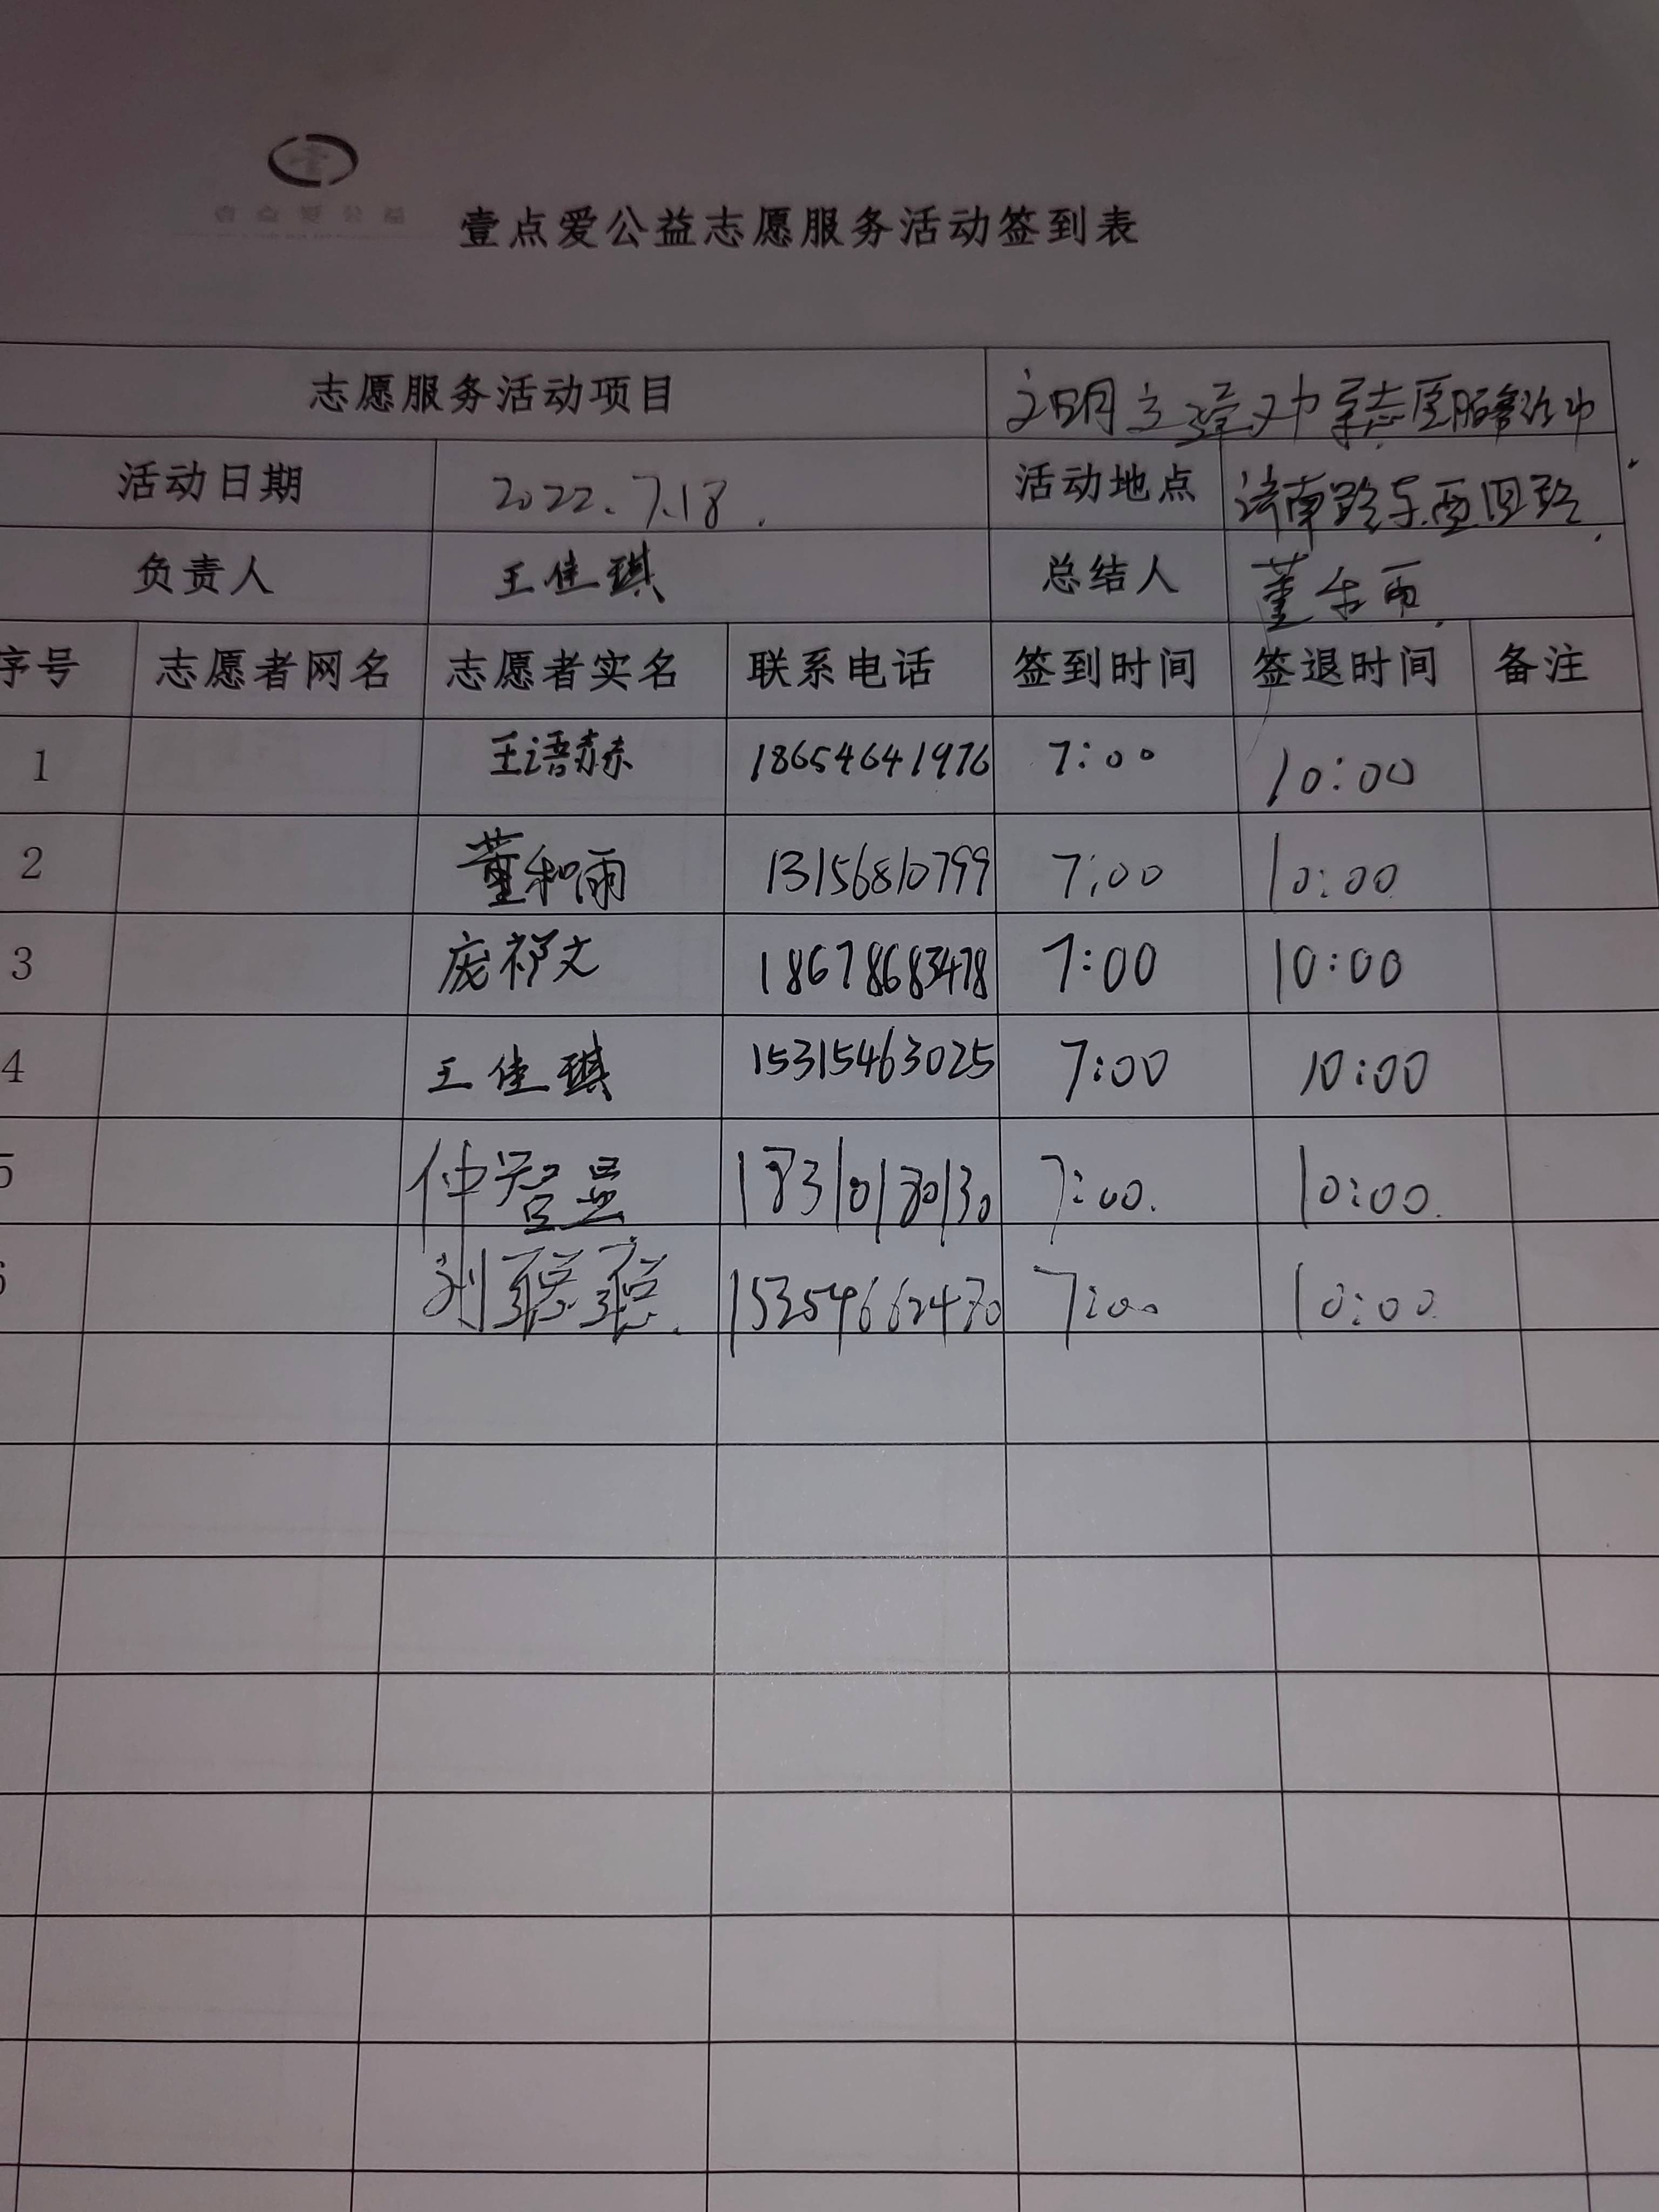 壹点爱公益
壹点爱公益志愿服务活动签到表
志愿服务活动项目 文明交通 志愿服务活动
活动日期 2022.7.18. 活动地点 济南路东西四路
负责人 王佳琪 总结人 董和雨
序号 志愿者网名 志愿者实名 联系电话 签到时间 签退时间 备注
1 王语赫 18654641976 7:00 10:00
2 董和雨 13156810799 7:00 10:00
3 庞祁文 18678683478 7:00 10:00
4 王佳琪 15315463025 7:00 10:00
5 仲 18310180130 7:00. 10:00.
6 刘聪聪. 15254662470 7:00 10:00